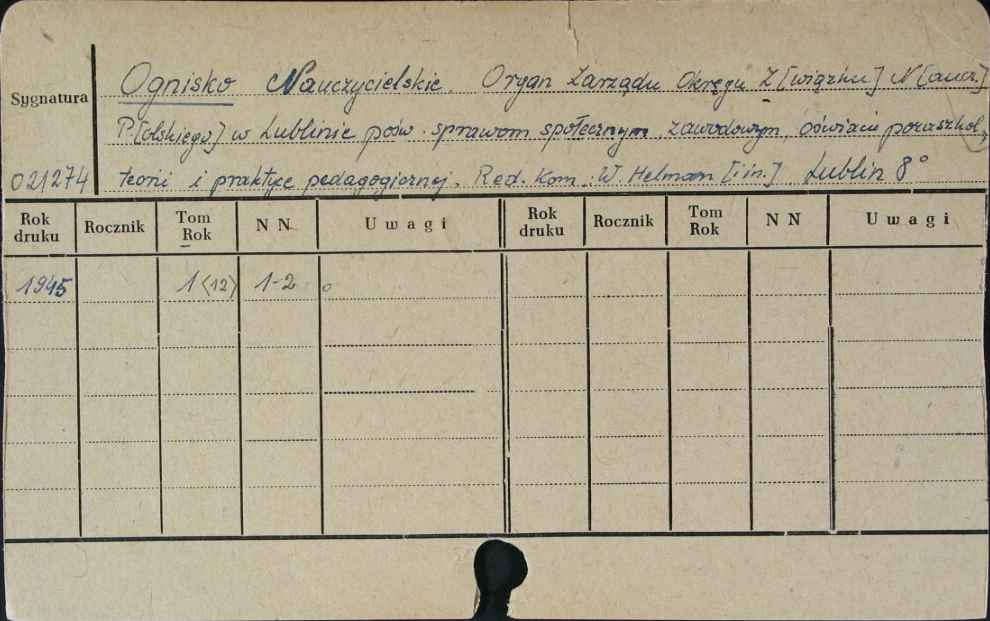 Ognisko Nauczycielskie. Organ Zarządu Okręgu Z[wiązku] N[aucz.]
Sygnatura
P[olskiego] w Lublinie pośw. sprawom społecznym, zawodowym, oświacie pozaszkol.,
021274 teorii i praktyce pedagogicznej. Red. Kom.: W. Helman [i in.] Lublin 8°
Rok druku Rocznik Tom Rok NN Uwagi Rok druku Rocznik Tom Rok NN Uwagi
1945 1<12> 1-2